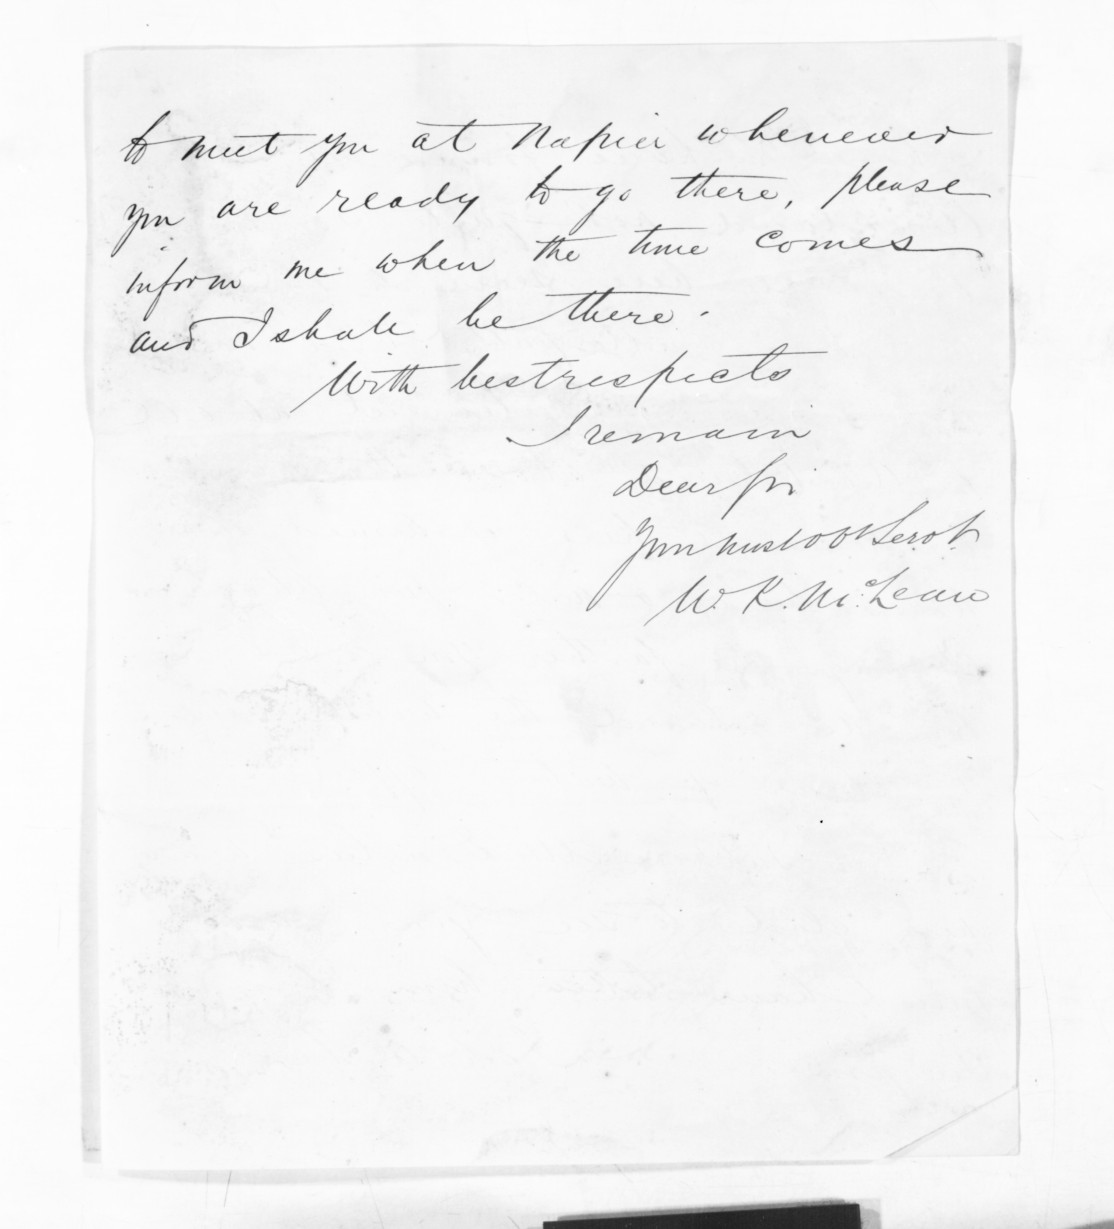 to meet you at Napier whenever
you are ready to go there, please
inform me when the time comes
and I shall be there.
With best respects
I remain
Dear Sir
Your most obt Servt.
W. K. McLean